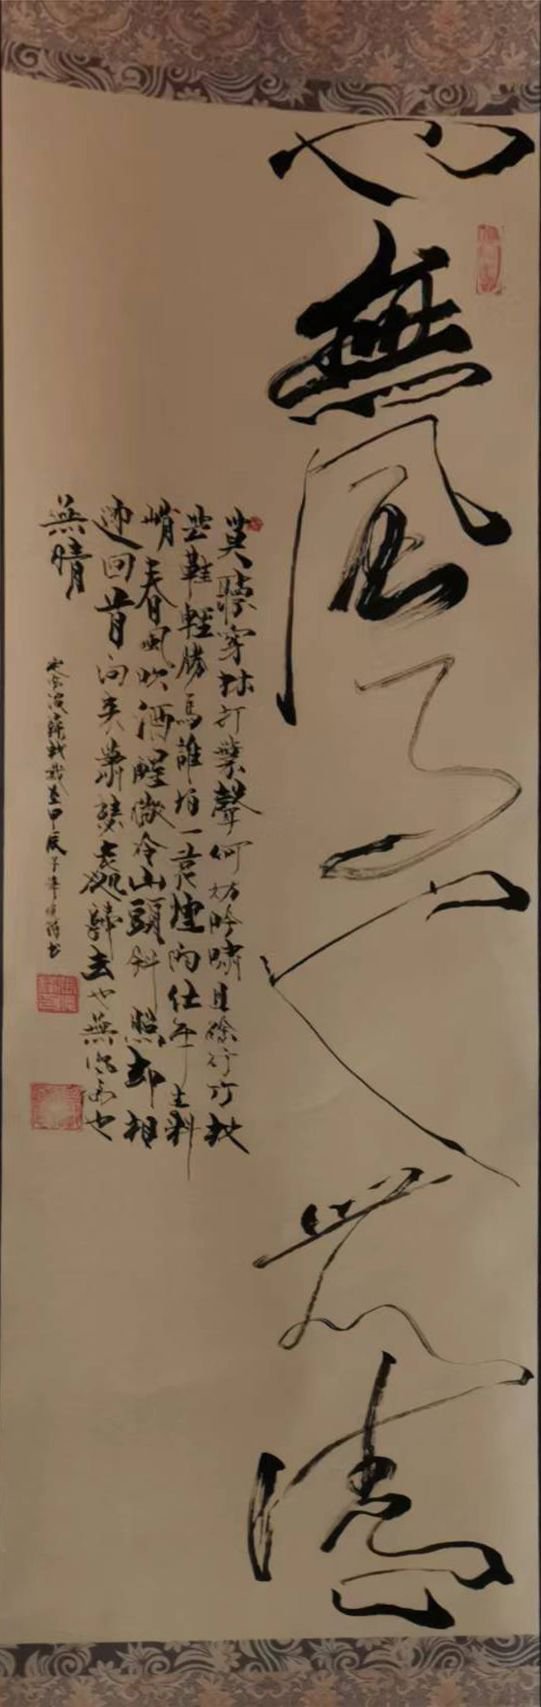 也無風雨也無晴
莫聽穿林打葉聲何妨吟嘯且徐行竹杖
芒鞋輕勝馬誰怕一蓑煙雨任平生料
峭春風吹酒醒微冷山頭斜照却相
迎回首向來蕭瑟處歸去也無風雨也
無晴
甲辰